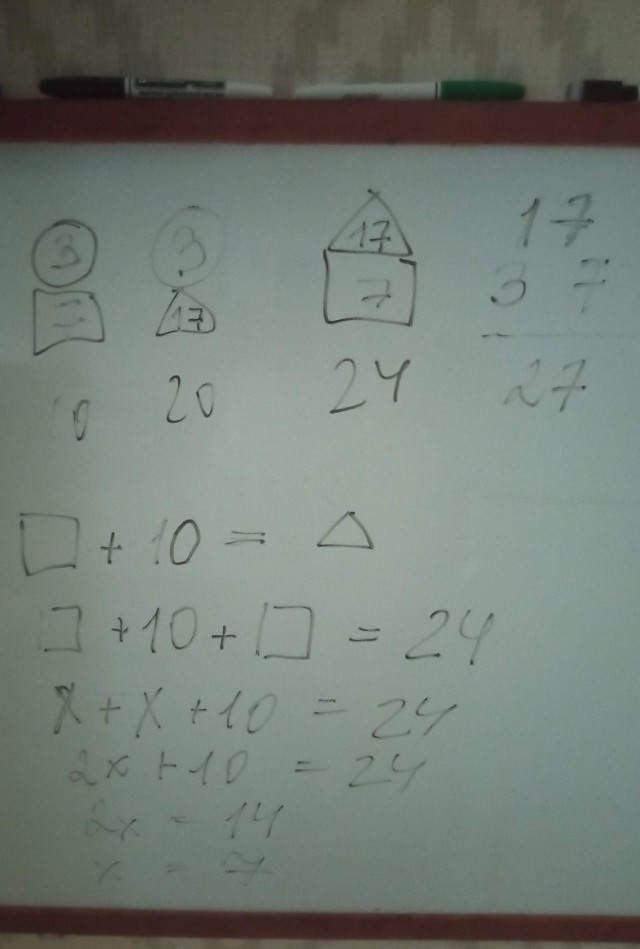 3 3 17 17
7 17 7 3 7
10 20 24 27
□ + 10 = △
□ + 10 + □ = 24
x + x + 10 = 24
2x + 10 = 24
2x = 14
x = 7